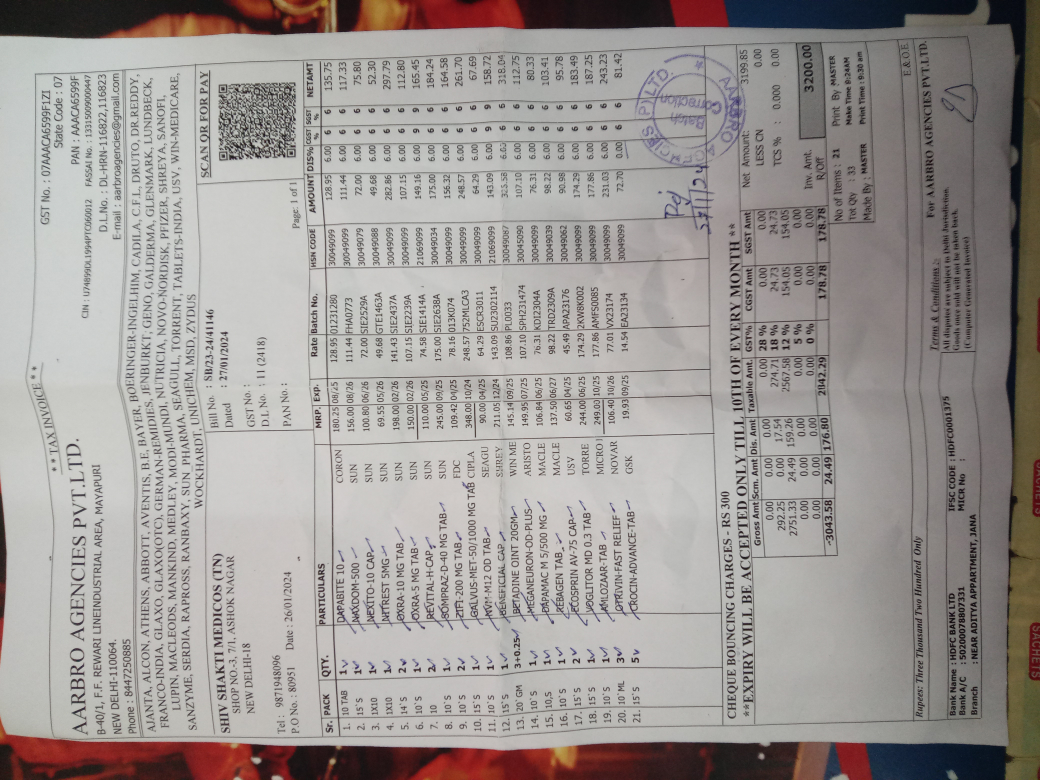 **TAX INVOICE**
GST No. : 07AAACA6599F1ZI
State Code : 07
PAN : AAACA6599F
CIN : U74899DL1994PTC060012 FASSAI No. : 13315009000447
D.L.No. : DL-HRN-116822,116823
E-mail : aarbroagencies@gmail.com
AARBRO AGENCIES PVT.LTD.
B-40/1, F.F. REWARI LINEINDUSTRIAL AREA, MAYAPURI
NEW DELHI-110064.
Phone : 8447250885
AJANTA, ALCON, ATHENS, ABBOTT, AVENTIS, B.E, BAYER, BOERINGER-INGELHIM, CADILA, C.F.L, DRUTO, DR.REDDY,
FRANCO-INDIA, GLAXO, GLAXO(OTC), GERMAN-REMIDIES, JENBURKT, GENO, GALDERMA, GLENMARK, LUNDBECK,
LUPIN, MACLEODS, MANKIND, MEDLEY, MODI-MUNDI, NUTRICIA, NOVO-NORDISK, PFIZER, SHREYA, SANOFI,
SANZYME, SERDIA, RAPROSS, RANBAXY, SUN PHARMA, SEAGULL, TORRENT, TABLETS-INDIA, USV, WIN-MEDICARE,
WOCKHARDT, UNICHEM, MSD, ZYDUS
SHIV SHAKTI MEDICOS (TN)
SHOP NO.-3, 7/1, ASHOK NAGAR
NEW DELHI-18
Tel : 9871948096
P.O No. : 80951 Date : 26/01/2024
Bill No. : SB/23-24/41146
Dated : 27/01/2024
GST No. :
D.L No. : 11 (2418)
PAN No. :
Page: 1 of 1
SCAN QR FOR PAY
Sr. PACK QTY. PARTICULARS MRP. Exp. Rate Batch No. HSN CODE AMOUNT DIS% CGST % SGST % NETAMT
1. 10 TAB 1 DAPABITE 10 CORON 180.25 08/25 128.95 01231280 30049099 128.95 6.00 6 6 135.75
2. 15'S 1 NAXDOM-500 SUN 156.00 08/26 111.44 FHA0773 30049099 111.44 6.00 6 6 117.33
3. 1X10 1 NEXITO-10 CAP SUN 100.80 06/26 72.00 SIE2529A 30049079 72.00 6.00 6 6 75.80
4. 1X10 1 NITREST 5MG SUN 69.55 05/26 49.68 GTE1463A 30049088 49.68 6.00 6 6 52.30
5. 14'S 2 OXRA-10 MG TAB SUN 198.00 02/26 141.43 SIE2437A 30049099 282.86 6.00 6 6 297.79
6. 10'S 1 OXRA-5 MG TAB SUN 150.00 02/26 107.15 SIE2239A 30049099 107.15 6.00 6 6 112.80
7. 10 2 REVITAL-H-CAP SUN 110.00 05/25 74.58 SIE1414A 21069099 149.16 6.00 9 9 165.45
8. 10'S 1 SOMPRAZ-D-40 MG TAB SUN 245.00 09/25 175.00 SIE2638A 30049034 175.00 6.00 6 6 184.24
9. 10'S 2 ZIFI-200 MG TAB FDC 109.42 04/25 78.16 013K074 30049099 156.32 6.00 6 6 164.58
10. 15'S 1 GALVUS-MET-50/1000 MG TAB CIPLA 348.00 10/24 248.57 752MLCA3 30049099 248.57 6.00 6 6 261.70
11. 10'S 1 OD TAB SEAGU 90.00 04/25 64.29 ESCR3011 30049099 64.29 6.00 6 6 67.69
12. 15'S 1 CAP SHREY 211.05 12/24 143.09 SU2302114 21069099 143.09 6.00 9 9 158.72
13. 20 GM 3+0.25 BETADINE OINT 20GM WIN ME 145.14 09/25 108.86 PL0033 30049087 6 6 318.04
14. 10'S 1 MEGANEURON-OD-PLUS- ARISTO 149.95 07/25 107.10 SPH231474 30045090 107.10 6.00 6 6 112.75
15. 10,S 1 DAPAMAC M 5/500 MG MACLE 106.84 06/25 76.31 KD12304A 30049099 76.31 6.00 6 6 80.33
16. 10'S 1 REBAGEN TAB MACLE 137.50 06/27 98.22 TRD2309A 30049039 98.22 6.00 6 6 103.41
17. 15'S 2 ECOSPRIN AV-75 CAP USV 60.65 04/25 45.49 APA23176 30049062 90.98 6.00 6 6 95.78
18. 15'S 1 VOGLITOR MD 0.3 TAB TORRE 244.00 06/25 174.29 2KWBK002 30049099 174.29 6.00 6 6 183.49
19. 10'S 1 AMLOZAAR-TAB MICRO 249.00 10/25 177.86 AMFS0085 30049099 177.86 6.00 6 6 187.25
20. 10 ML 3 OTRIVIN-FAST RELIEF NOVAR 106.40 10/26 77.01 VX2174 30049099 231.03 6.00 6 6 243.23
21. 15'S 5 CROCIN-ADVANCE-TAB GSK 19.93 09/25 14.54 EA23134 30049099 72.70 0.00 6 6 81.42
AARBRO AGENCIES P. LTD.
Batch
Correction
CHEQUE BOUNCING CHARGES - RS 300
**EXPIRY WILL BE ACCEPTED ONLY TILL 10TH OF EVERY MONTH **
Gross Amt Scm. Amt Dis. Amt Taxable Amt. GST% CGST Amt SGST Amt
0.00 0.00 0.00 0.00 28 % 0.00 0.00
292.25 0.00 17.54 274.71 18 % 24.73 24.73
2751.33 24.49 159.26 2567.58 12 % 154.05 154.05
0.00 0.00 0.00 0.00 5 % 0.00 0.00
0.00 0.00 0.00 0.00 0 % 0.00 0.00
3043.58 24.49 176.80 2842.29 178.78 178.78
Net Amount: 3199.85
LESS CN 0.00
TCS % : 0.000 0.00
Inv. Amt. 3200.00
R/Off
No of Items : 21
Tot Qty : 33
Made By : MASTER
Print By MASTER
Make Time 9:24AM
Print Time : 9:30 am
Rupees: Three Thousand Two Hundred Only
E.& O.E
Bank Name : HDFC BANK LTD
Bank A/C : 50200078807331
Branch : NEAR ADITYA APPARTMENT, JANA
IFSC CODE : HDFC0001375
MICR No :
Terms & Conditions :-
All disputes are subject to Delhi Jurisdiction.
Goods once sold will not be taken back.
(Computer Generated Invoice)
For AARBRO AGENCIES PVT.LTD.
SACHETS